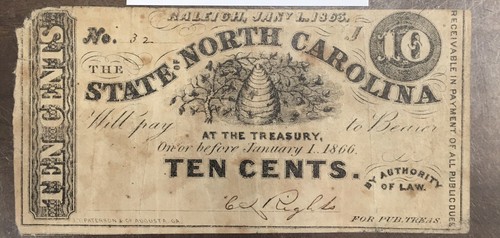 RALEIGH, JAN'Y 1. 1863.
No. 32
10
THE
STATE OF NORTH CAROLINA
Will pay to Bearer
AT THE TREASURY,
On or before January 1. 1866.
TEN CENTS.
BY AUTHORITY
OF LAW.
FOR PUB. TREAS.
TEN CENTS
RECEIVABLE IN PAYMENT OF ALL PUBLIC DUES